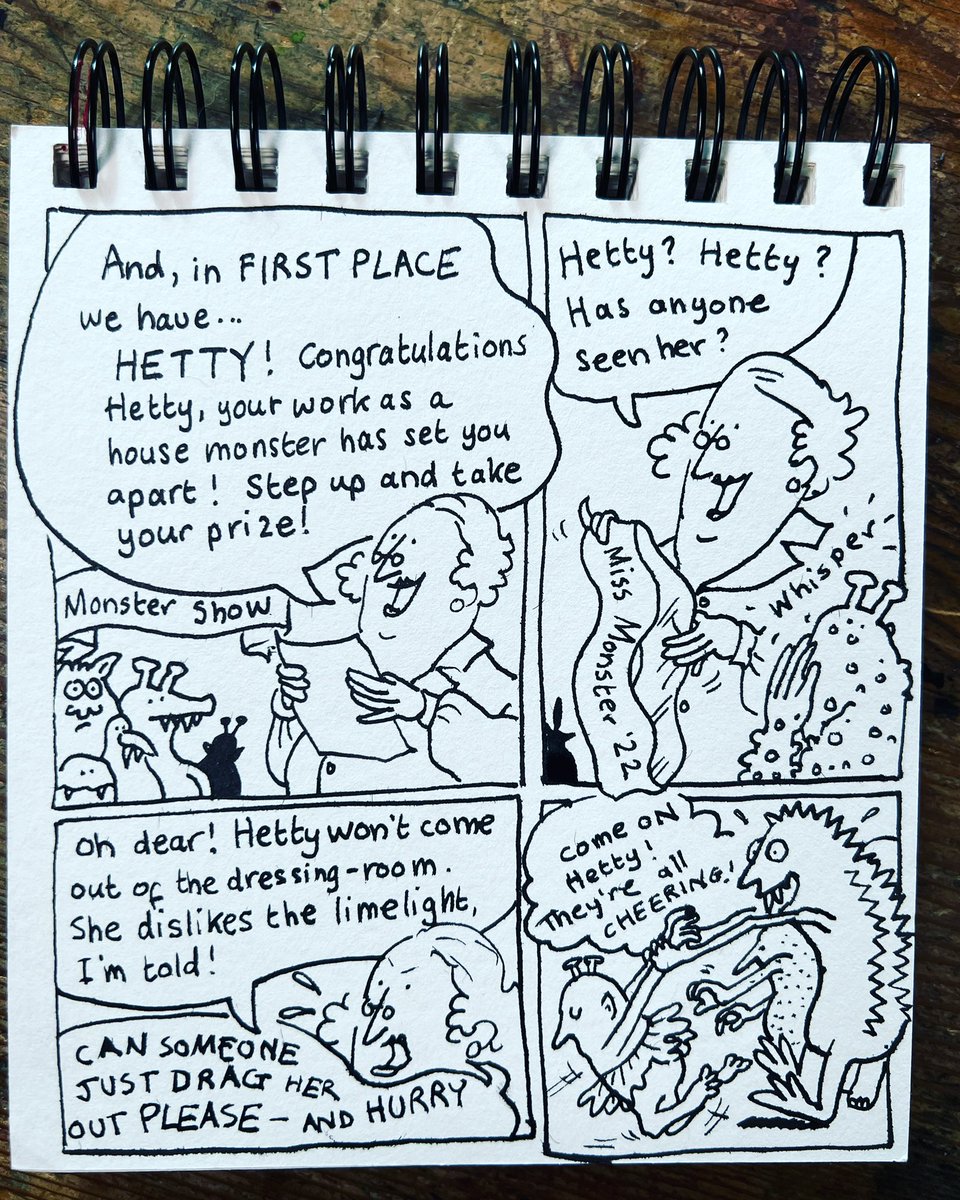 And, in FIRST PLACE
we have...
HETTY! Congratulations
Hetty, your work as a
house monster has set you
apart! Step up and take
your prize!
Monster Show
Hetty? Hetty?
Has anyone
seen her?
Miss Monster '22
Whisper
Oh dear! Hetty won't come
out of the dressing-room.
She dislikes the limelight,
I'm told!
CAN SOMEONE
JUST DRAG HER
OUT PLEASE - AND HURRY
Come ON
Hetty!
They're all
CHEERING!